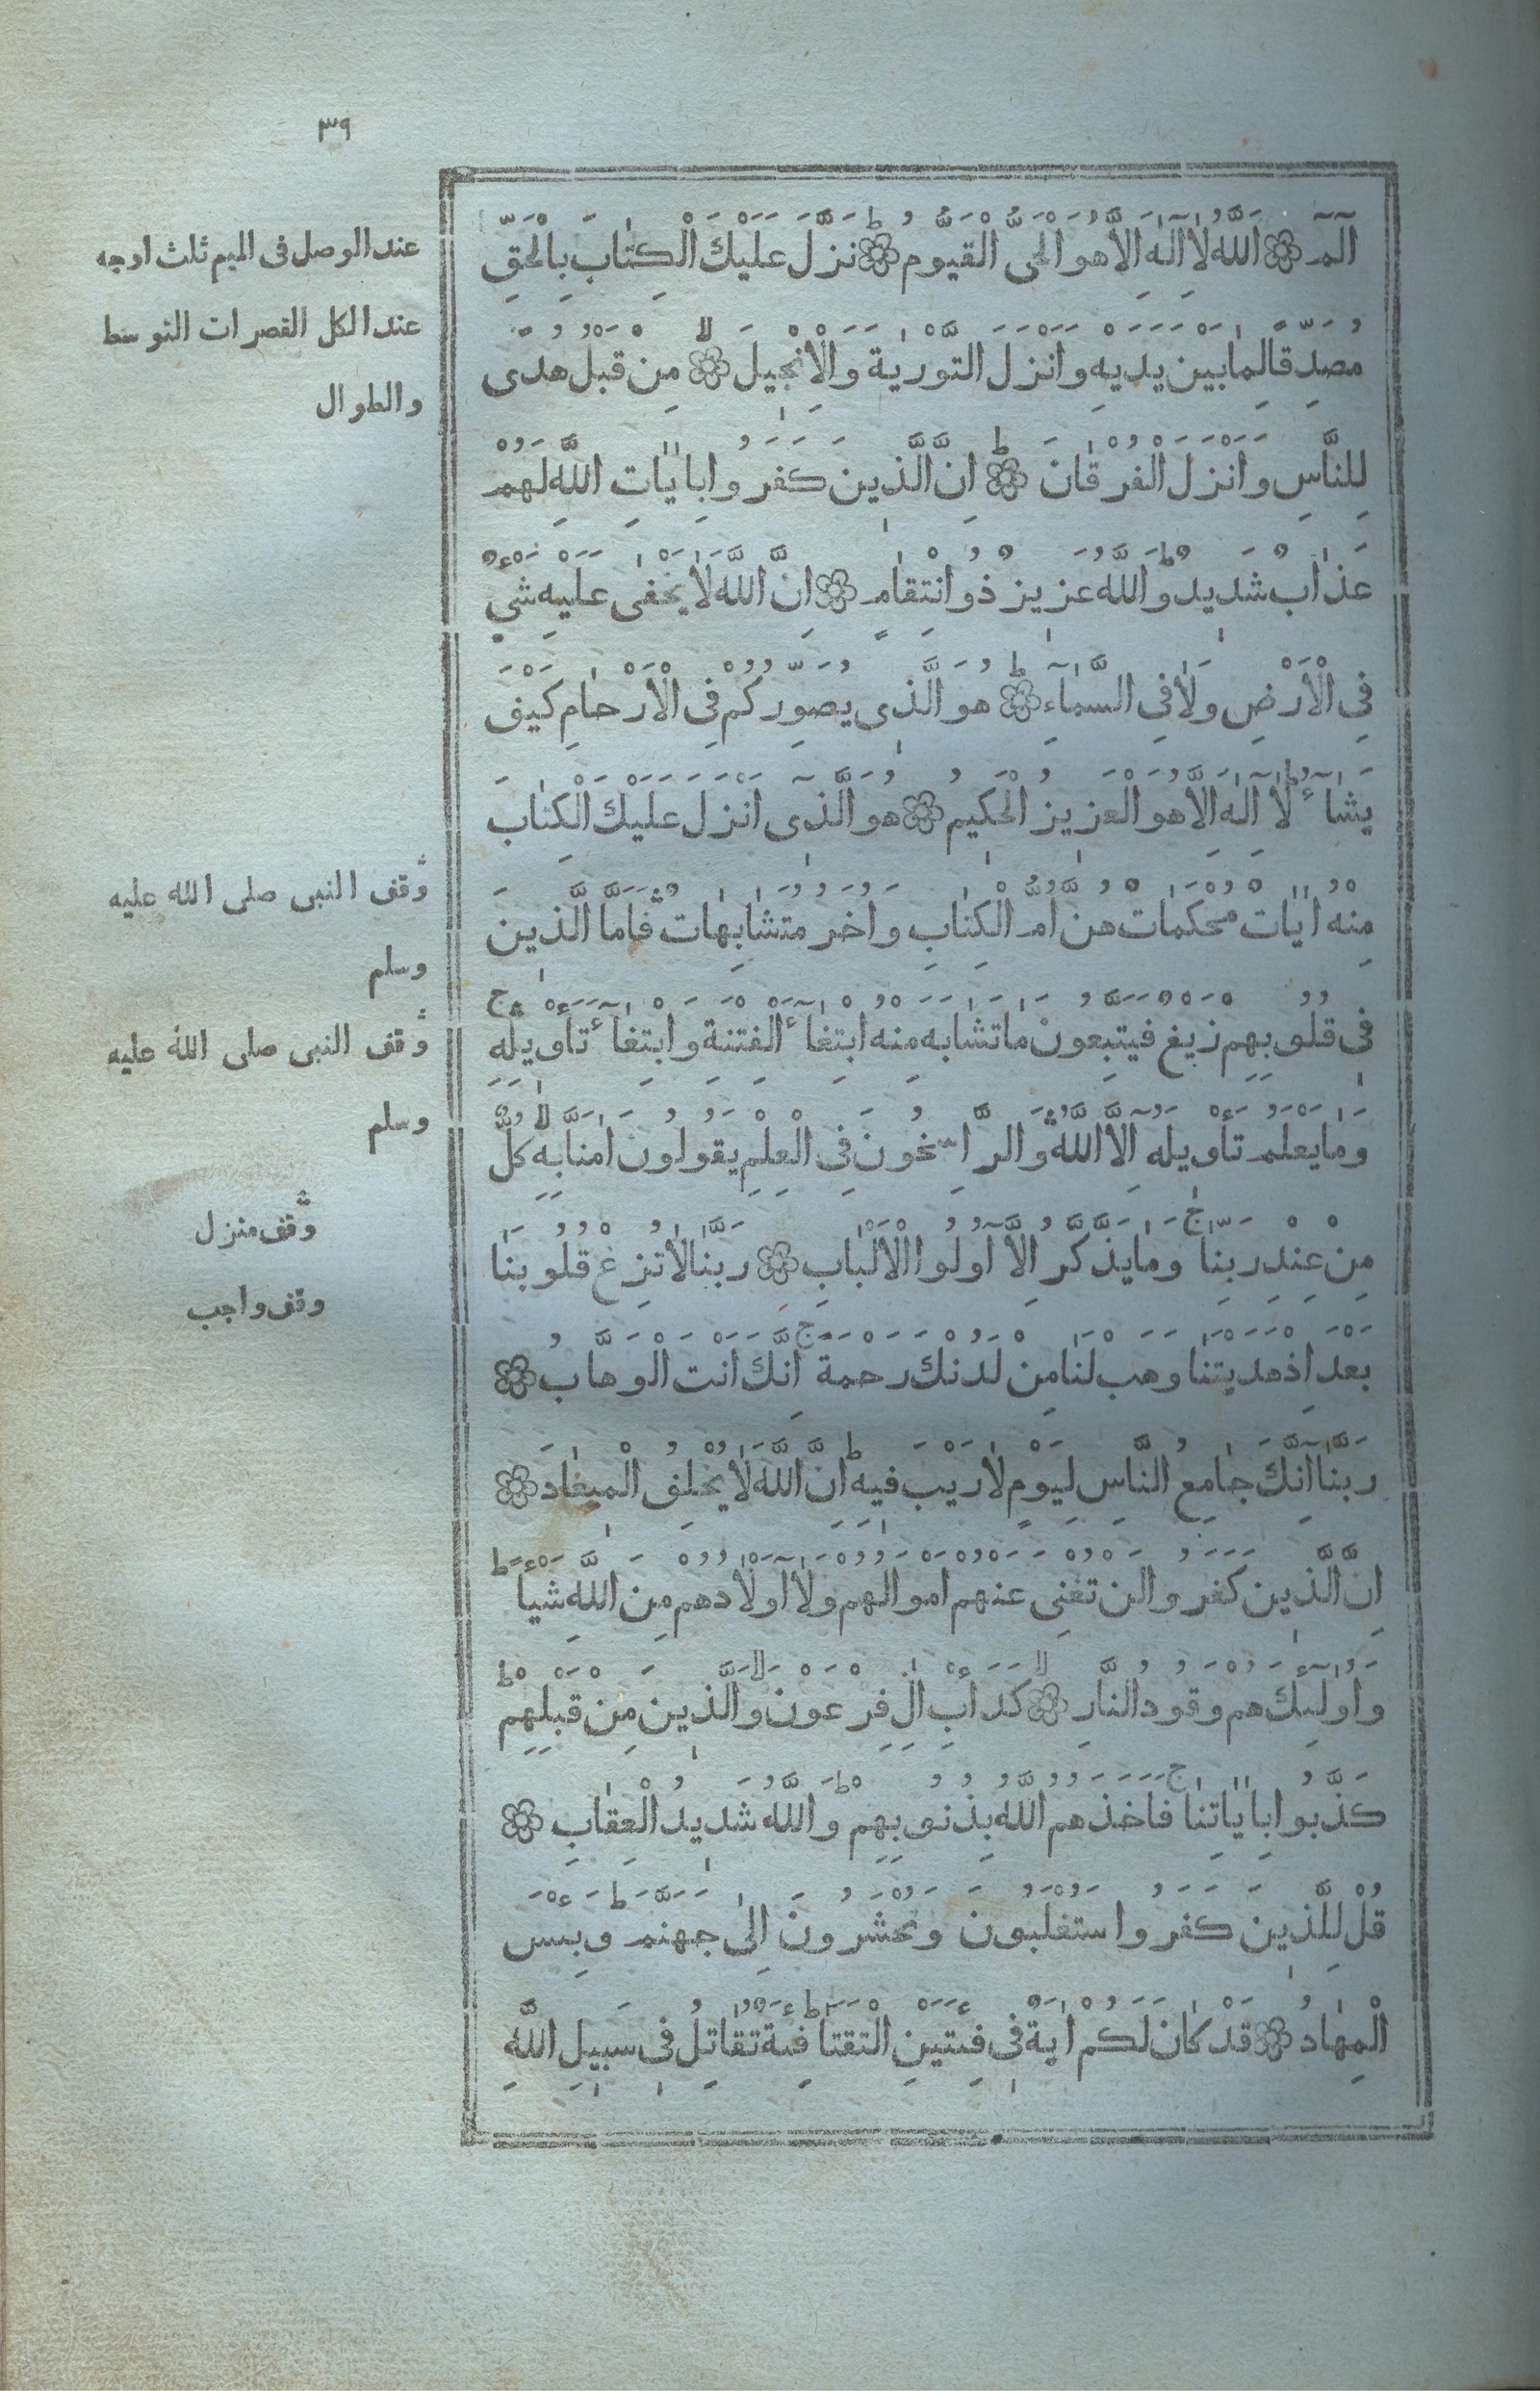 ٣٩
الٓمٓ ۞ اَللّٰهُ لَٓا اِلٰهَ اِلَّا هُوَ الْحَىُّ الْقَيُّومُ ۞ نَزَّلَ عَلَيْكَ الْكِتَابَ بِالْحَقِّ
مُصَدِّقًا لِمَا بَيْنَ يَدَيْهِ وَاَنْزَلَ التَّوْرٰيةَ وَالْاِنْجِيلَ ۞ مِنْ قَبْلُ هُدًى
لِلنَّاسِ وَاَنْزَلَ الْفُرْقَانَ ۞ اِنَّ الَّذِينَ كَفَرُوا بِاٰيَاتِ اللّٰهِ لَهُمْ
عَذَابٌ شَدِيدٌ وَاللّٰهُ عَزِيزٌ ذُو انْتِقَامٍ ۞ اِنَّ اللّٰهَ لَا يَخْفٰى عَلَيْهِ شَىْءٌ
فِى الْاَرْضِ وَلَا فِى السَّمَٓاءِ ۞ هُوَ الَّذِى يُصَوِّرُكُمْ فِى الْاَرْحَامِ كَيْفَ
يَشَٓاءُ لَٓا اِلٰهَ اِلَّا هُوَ الْعَزِيزُ الْحَكِيمُ ۞ هُوَ الَّذِٓى اَنْزَلَ عَلَيْكَ الْكِتَابَ
مِنْهُ اٰيَاتٌ مُحْكَمَاتٌ هُنَّ اُمُّ الْكِتَابِ وَاُخَرُ مُتَشَابِهَاتٌ فَاَمَّا الَّذِينَ
فِى قُلُوبِهِمْ زَيْغٌ فَيَتَّبِعُونَ مَا تَشَابَهَ مِنْهُ ابْتِغَٓاءَ الْفِتْنَةِ وَابْتِغَٓاءَ تَأْوِيلِهِ
وَمَا يَعْلَمُ تَأْوِيلَهُٓ اِلَّا اللّٰهُ وَالرَّاسِخُونَ فِى الْعِلْمِ يَقُولُونَ اٰمَنَّا بِهِ كُلٌّ
مِنْ عِنْدِ رَبِّنَا وَمَا يَذَّكَّرُ اِلَّٓا اُولُوا الْاَلْبَابِ ۞ رَبَّنَا لَا تُزِغْ قُلُوبَنَا
بَعْدَ اِذْ هَدَيْتَنَا وَهَبْ لَنَا مِنْ لَدُنْكَ رَحْمَةً اِنَّكَ اَنْتَ الْوَهَّابُ ۞
رَبَّنَٓا اِنَّكَ جَامِعُ النَّاسِ لِيَوْمٍ لَا رَيْبَ فِيهِ اِنَّ اللّٰهَ لَا يُخْلِفُ الْمِيعَادَ ۞
اِنَّ الَّذِينَ كَفَرُوا لَنْ تُغْنِىَ عَنْهُمْ اَمْوَالُهُمْ وَلَٓا اَوْلَادُهُمْ مِنَ اللّٰهِ شَيْئًا
وَاُولٰٓئِكَ هُمْ وَقُودُ النَّارِ ۞ كَدَأْبِ اٰلِ فِرْعَوْنَ وَالَّذِينَ مِنْ قَبْلِهِمْ
كَذَّبُوا بِاٰيَاتِنَا فَاَخَذَهُمُ اللّٰهُ بِذُنُوبِهِمْ وَاللّٰهُ شَدِيدُ الْعِقَابِ ۞
قُلْ لِلَّذِينَ كَفَرُوا سَتُغْلَبُونَ وَتُحْشَرُونَ اِلٰى جَهَنَّمَ وَبِئْسَ
الْمِهَادُ ۞ قَدْ كَانَ لَكُمْ اٰيَةٌ فِى فِئَتَيْنِ الْتَقَتَا فِئَةٌ تُقَاتِلُ فِى سَبِيلِ اللّٰهِ
عند الوصل فى الميم ثلث اوجه
عند الكل القصرات التوسط
والطوال
وقف النبى صلى الله عليه
وسلم
وقف النبى صلى الله عليه
وسلم
وقف منزل
وقف واجب